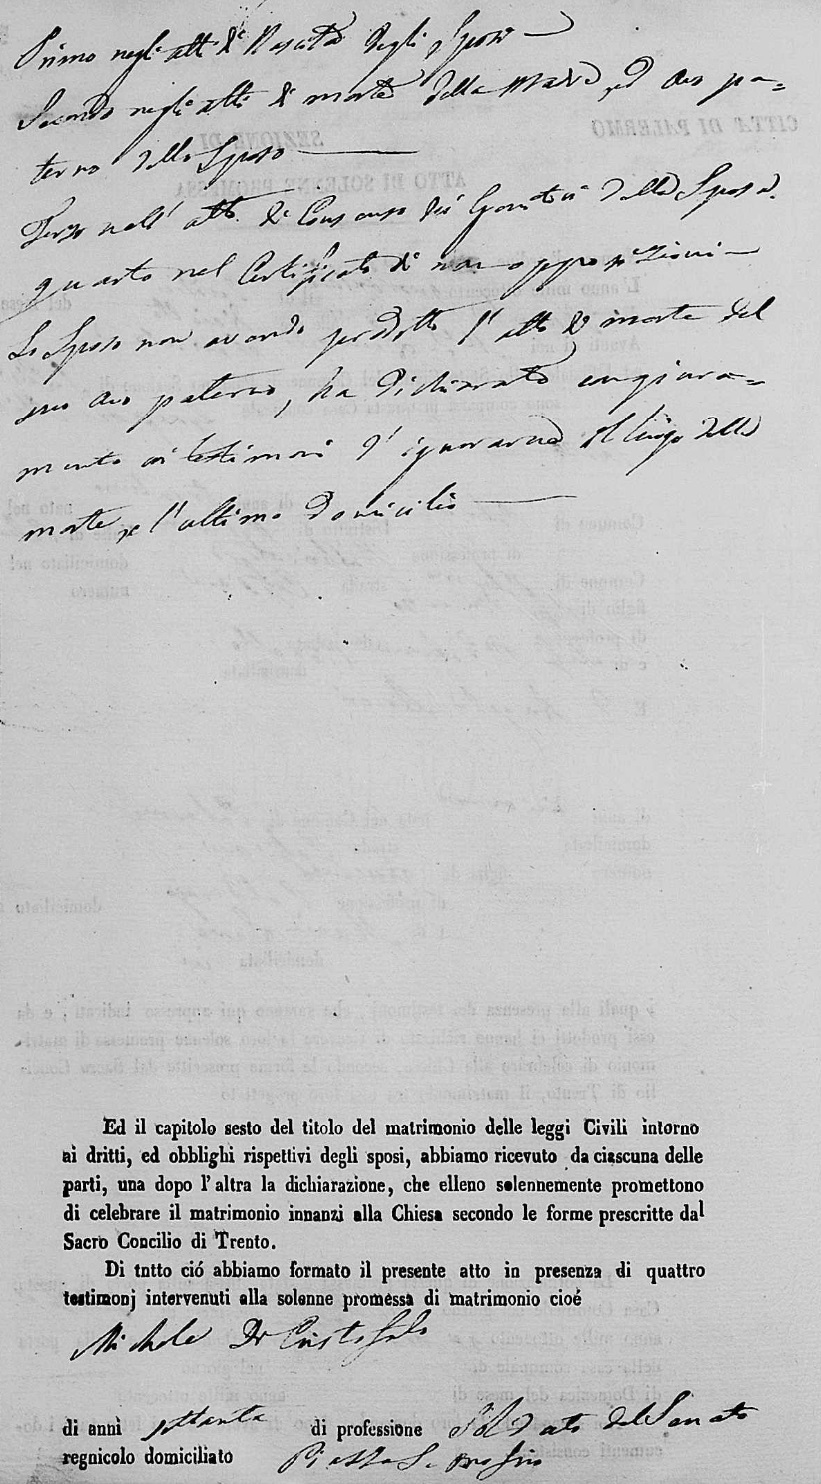 Primo negli atti di Nascita degli Sposi
Secondo negli atti di morte della Madre, ed avo pa=
terno dello Sposo
Terzo nell' atto di Consenso dei Genitori della Sposa.
quarto nel Certificato di non opposizioni
Lo Sposo non avendo prodotto l' atto di morte del
suo avo paterno, ha dichiarato con giura=
mento coi testimoni d' ignorarne il luogo della
morte e l' ultimo domicilio
Ed il capitolo sesto del titolo del matrimonio delle leggi Civili intorno
ai dritti, ed obblighi rispettivi degli sposi, abbiamo ricevuto da ciascuna delle
parti, una dopo l' altra la dichiarazione, che elleno solennemente promettono
di celebrare il matrimonio innanzi alla Chiesa secondo le forme prescritte dal
Sacro Concilio di Trento.
Di tntto ció abbiamo formato il presente atto in presenza di quattro
testimonj intervenuti alla solenne promessa di matrimonio cioé
Michele Di Cristofalo
di anni di professione del Senato
regnicolo domiciliato Piazza S.